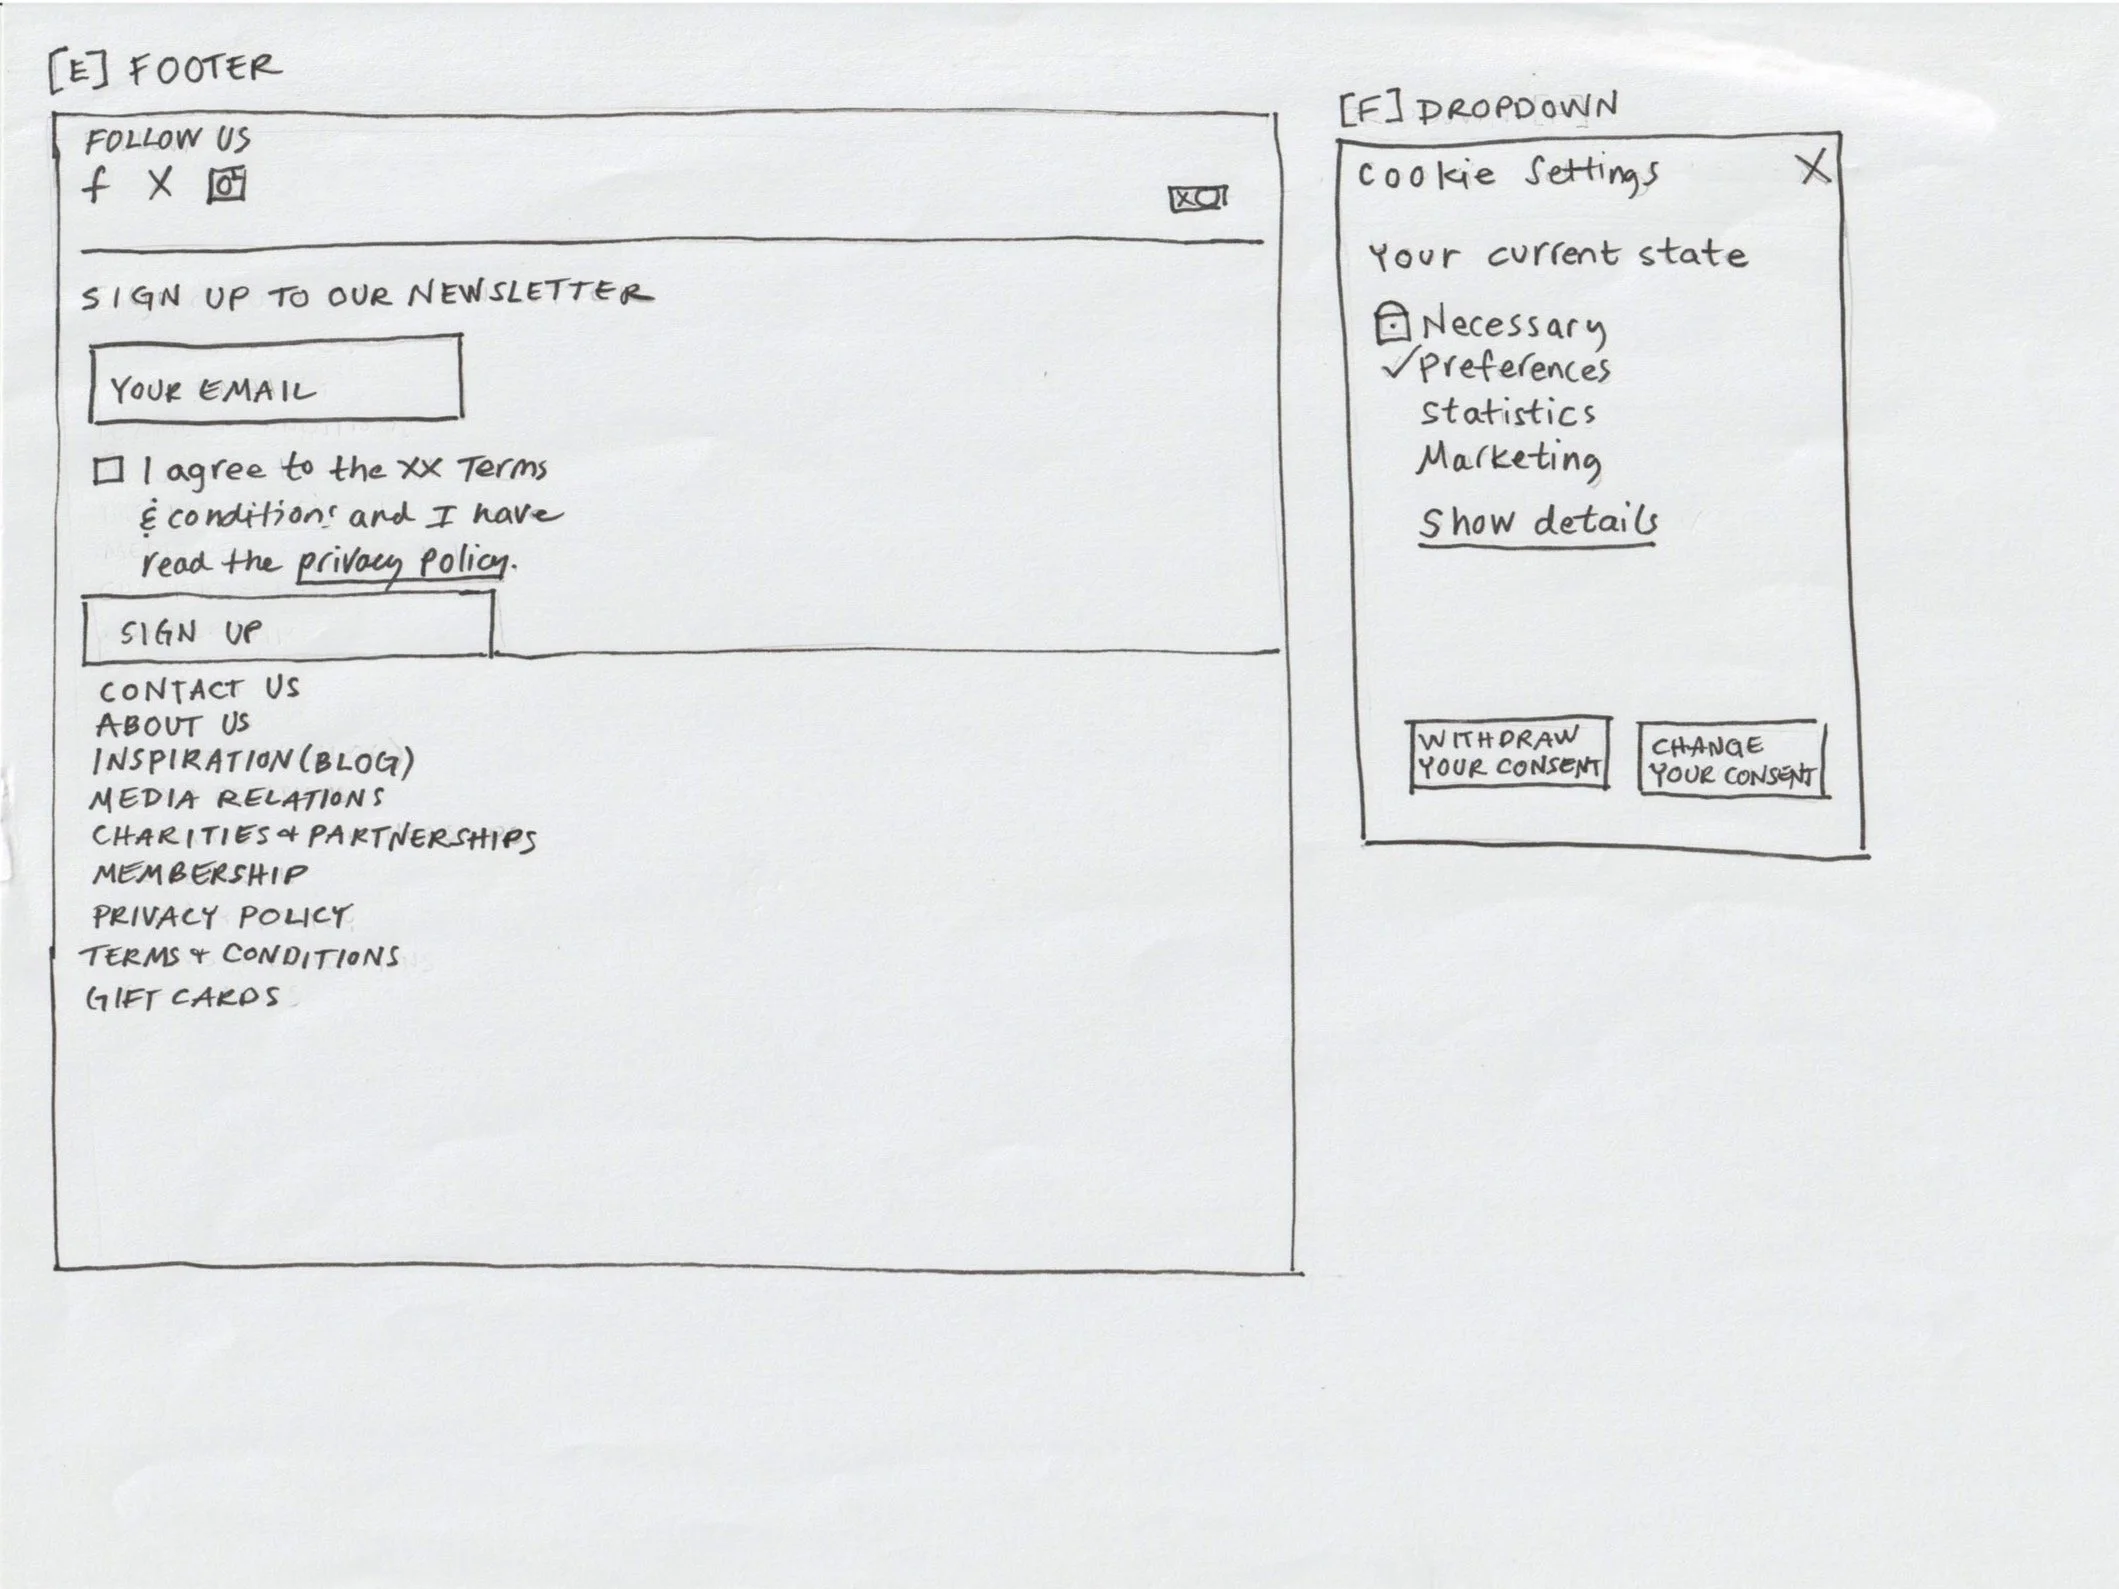 [E] FOOTER
FOLLOW US
f X
SIGN UP TO OUR NEWSLETTER
YOUR EMAIL
I agree to the XX Terms
& conditions and I have
read the privacy policy.
SIGN UP
CONTACT US
ABOUT US
INSPIRATION (BLOG)
MEDIA RELATIONS
CHARITIES & PARTNERSHIPS
MEMBERSHIP
PRIVACY POLICY
TERMS & CONDITIONS
GIFT CARDS
[F] DROPDOWN
Cookie Settings X
Your current state
Necessary
✓ Preferences
Statistics
Marketing
Show details
WITHDRAW
YOUR CONSENT
CHANGE
YOUR CONSENT